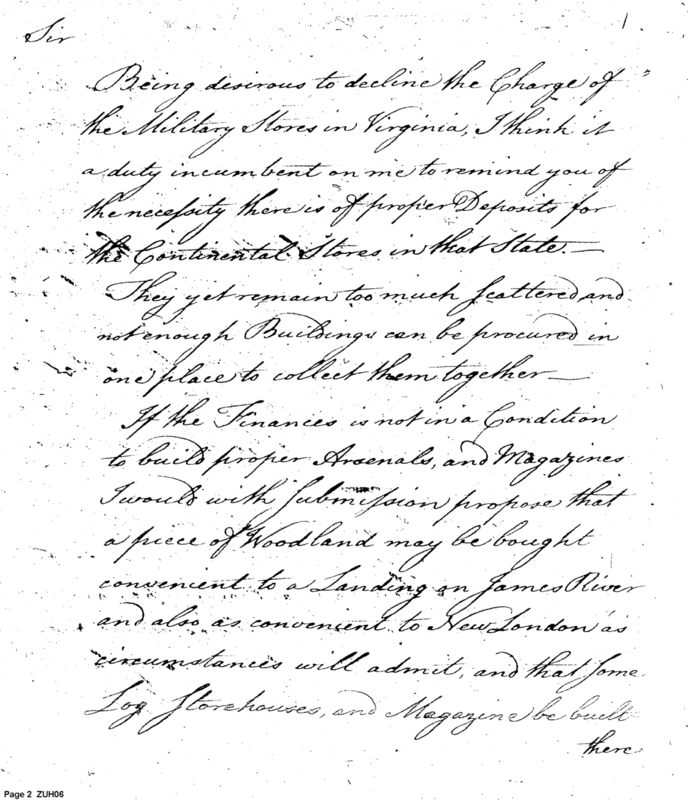 1
Sir
Being desirous to decline the Charge of
the Military Stores in Virginia, I think it
a duty incumbent on me to remind you of
the necessity there is of proper Deposits for
the Continental Stores in that State.—
They yet remain too much scattered and
not enough Buildings can be procured in
one place to collect them together—
If the Finances is not in a Condition
to build proper Arsenals, and Magazines
I would with submission propose that
a piece of Woodland may be bought
convenient to a Landing on James River
and also as convenient to New London as
circumstances will admit, and that some
Log Storehouses, and Magazine be built
there
Page 2 ZUH06